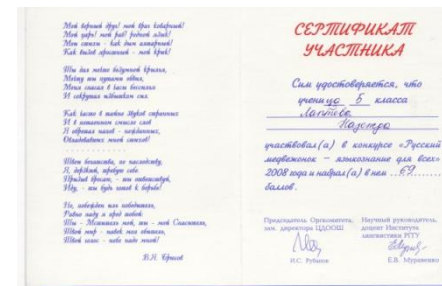 Мой верный друг! мой враг коварный!
Мой царь! мой раб! родной язык!
Мои стихи - как дым алтарный!
Как вызов яростный - мой крик!
Ты дал мечте безумной крылья,
Мечту ты путами обвил,
Меня спасал в часы бессилья
И сокрушал избытком сил.
Как часто в тайне звуков странных
И в потаенном смысле слов
Я обретал напев - нежданных,
Овладевавших мной стихов!
Твои богатства, по наследству,
Я, дерзкий, требую себе.
Призыв бросаю, - ты ответствуй,
Иду, - ты будь готов к борьбе!
Но, побежден иль победитель,
Равно паду я пред тобой:
Ты - Мститель мой, ты - мой Спаситель,
Твой мир - навек моя обитель,
Твой голос - небо надо мной!
В.Я. Брюсов
СЕРТИФИКАТ
УЧАСТНИКА
Сим удостоверяется, что
ученица 5 класса
Лаптева
участвовал(а) в конкурсе «Русский
медвежонок – языкознание для всех»
2008 года и набрал(а) в нем 69
баллов.
Председатель Оргкомитета,
зам. директора ЦДООШ
И.С. Рубанов
Научный руководитель,
доцент Института
лингвистики РГГУ
Е.В. Муравенко